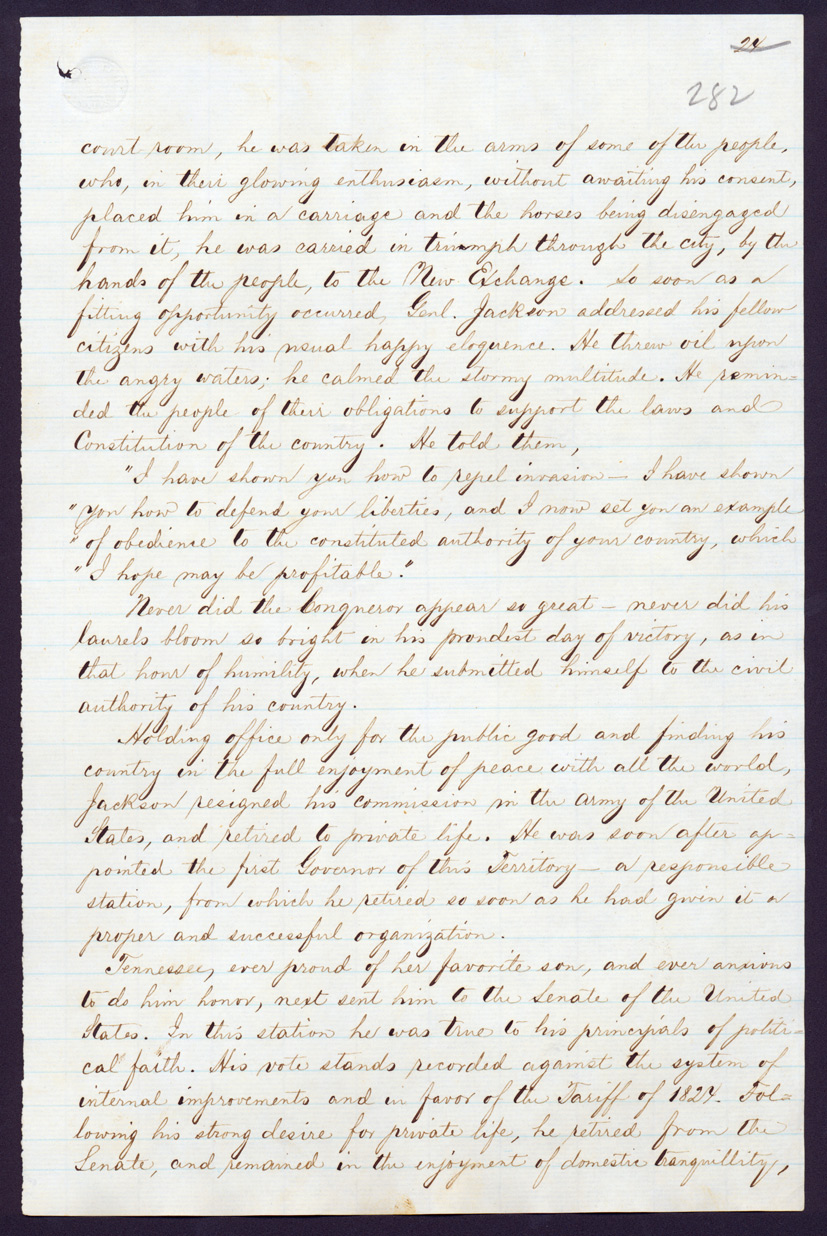 24
282
court room, he was taken in the arms of some of the people,
who, in their glowing enthusiasm, without awaiting his consent,
placed him in a carriage and the horses being disengaged
from it, he was carried in triumph through the city, by the
hands of the people, to the New Exchange. So soon as a
fitting opportunity occurred, Genl. Jackson addressed his fellow
citizens with his usual happy eloquence. He threw oil upon
the angry waters; he calmed the stormy multitude. He remin=
ded the people of their obligations to support the laws and
Constitution of the country. He told them,
"I have shown you how to repel invasion — I have shown
"you how to defend your liberties, and I now set you an example
"of obedience to the constituted authority of your country, which
"I hope may be profitable."
Never did the Conqueror appear so great — never did his
laurels bloom so bright in his proudest day of victory, as in
that hour of humility, when he submitted himself to the civil
authority of his country.
Holding office only for the public good and finding his
country in the full enjoyment of peace with all the world,
Jackson resigned his commission in the army of the United
States, and retired to private life. He was soon after ap=
pointed the first Governor of this Territory — a responsible
station, from which he retired so soon as he had given it a
proper and successful organization.
Tennessee, ever proud of her favorite son, and ever anxious
to do him honor, next sent him to the Senate of the United
States. In this station he was true to his principals of politi=
cal faith. His vote stands recorded against the system of
internal improvements and in favor of the Tariff of 1824. Fol=
lowing his strong desire for private life, he retired from the
Senate, and remained in the enjoyment of domestic tranquillity,